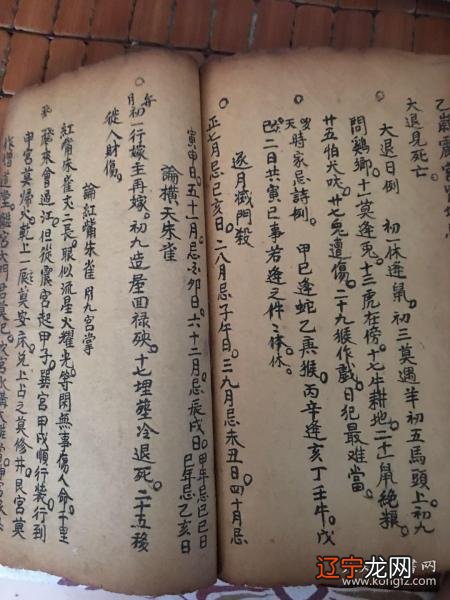 大退見死亡。
大退日例 初一休逢鼠。初三莫遇羊初五馬頭上。初九
問鷄鄉。十一莫逢兎。十三虎在傍。十七牛耕地。二十一鼠絶粮。
廿五怕犬吠。廿七兔遭傷。二十九猴作戲。日犯最難當。
天時家忌詩例。 甲巳逢蛇乙庚猴。丙辛逢亥丁壬牛。戊
二日共寅巳事若逢之件二律休。
逐月緘門殺
正七月忌巳亥日。二八月忌子午日。三九月忌未丑日四十月忌
寅申日。五十一月。忌卯日。六十二月忌辰戌日。甲年忌巳巳日
巳年忌乙亥日
論橫天朱雀
每月初一行嫁主再嫁。初九造屋回禄殃。十七埋塟冷退死。二十五移
從人財傷。
論紅嘴朱雀 附九宮掌
紅嘴朱雀丈二長。眼似流星火耀光。等閑無事傷人命。千里
飛來會過江。但從震宮起甲子。巽宮甲戌順行裝。行到
申宮莫歸火。乾上一厩莫安床。兑上占之莫修井。艮宮莫
辽宁龙网
www.kongfz.com